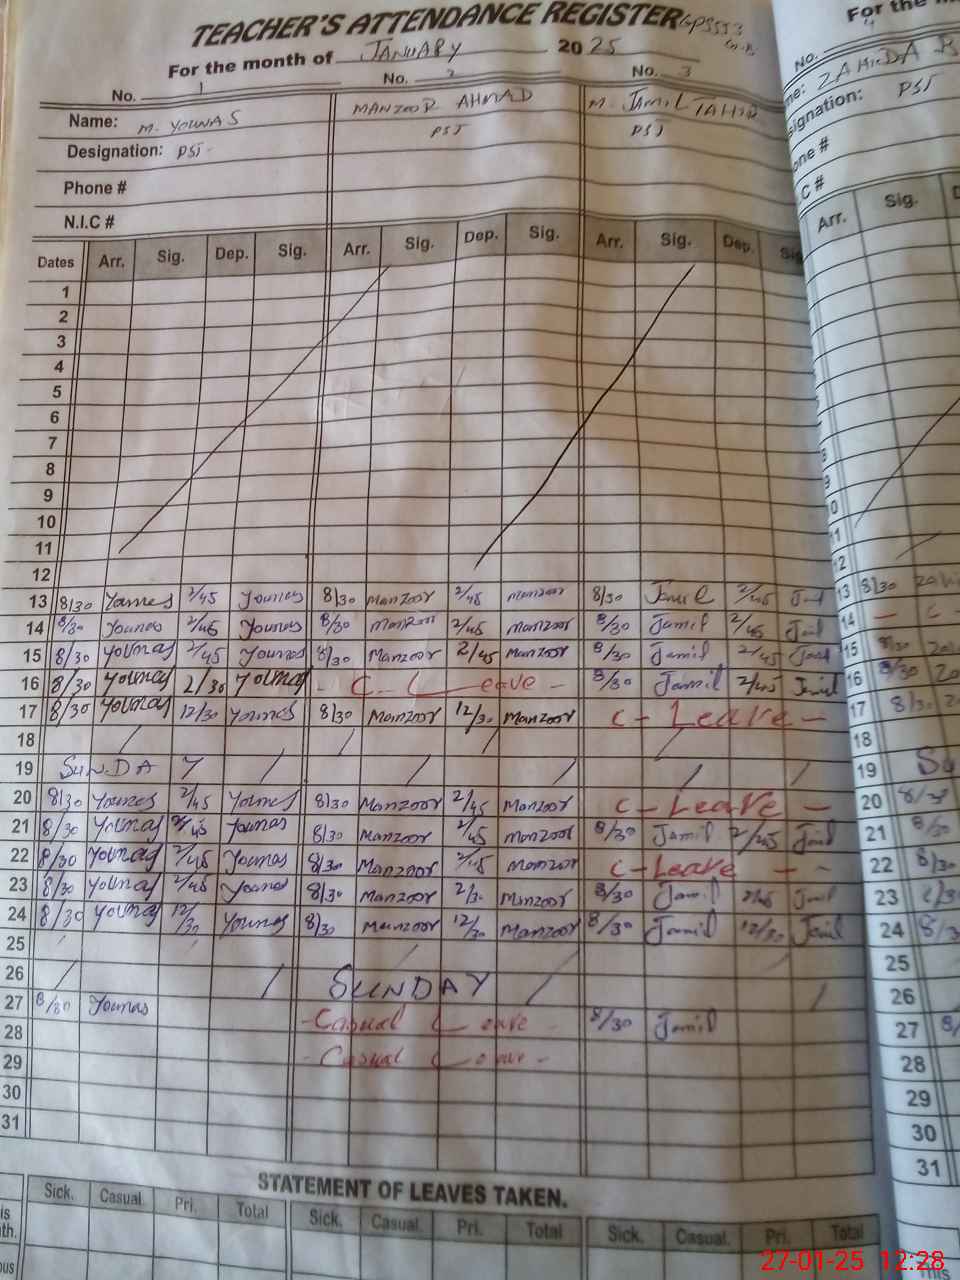 TEACHER'S ATTENDANCE REGISTER GPSSS3
For the month of JANUARY 2025
No. 1 No. 2 No. 3
Name: M. YOUNAS MANZOOR AHMAD M. JAMIL TAHIR
Designation: PST PST PST
Phone #
N.I.C #
Dates Arr. Sig. Dep. Sig. Arr. Sig. Dep. Sig. Arr. Sig. Dep. Sig.
1
2
3
4
5
6
7
8
9
10
11
12
13 8/30 Younas 2/45 Younas 8/30 Manzoor 2/45 Manzoor 8/30 Jamil 2/45 Jamil
14 8/30 Younas 2/45 Younas 8/30 Manzoor 2/45 Manzoor 8/30 Jamil 2/45 Jamil
15 8/30 Younas 2/45 Younas 8/30 Manzoor 2/45 Manzoor 8/30 Jamil 2/45 Jamil
16 8/30 Younas 2/30 Younas - C - Leave - 8/30 Jamil 2/45 Jamil
17 8/30 Younas 12/30 Younas 8/30 Manzoor 12/30 Manzoor C - Leave -
18
19 SUNDAY
20 8/30 Younas 2/45 Younas 8/30 Manzoor 2/45 Manzoor C - Leave -
21 8/30 Younas 2/45 Younas 8/30 Manzoor 2/45 Manzoor 8/30 Jamil 2/45 Jamil
22 8/30 Younas 2/45 Younas 8/30 Manzoor 2/45 Manzoor C - Leave - -
23 8/30 Younas 2/45 Younas 8/30 Manzoor 2/30 Manzoor 8/30 Jamil 2/45 Jamil
24 8/30 Younas 12/30 Younas 8/30 Manzoor 12/30 Manzoor 8/30 Jamil 12/30 Jamil
25
26 SUNDAY
27 8/30 Younas - Casual Leave - 8/30 Jamil
28 - Casual Leave -
29
30
31
STATEMENT OF LEAVES TAKEN.
Sick. Casual. Pri. Total Sick. Casual. Pri. Total Sick. Casual. Pri. Total
For the
No.
ZAHIDA
PST
Arr. Sig.
13 8/30
14 - C -
15 8/30
16 8/30
17 8/30
18
19 SU
20 8/30
21 8/30
22 8/30
23
24 8/3
25
26
27 8/
28
29
30
31
27-01-25 12:28